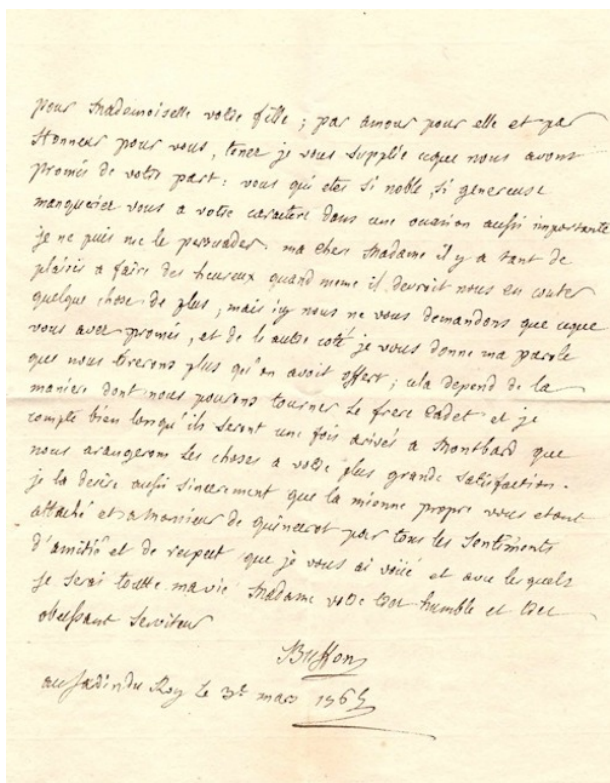 pour Mademoiselle votre fille ; par amour pour elle et par
Honneur pour vous, tenez je vous supplie ceque nous avons
promis de votre part : vous qui etes si noble, si genereuse
manqueriez vous a votre caractere dans une occasion aussi importante
je ne puis me le persuader. ma chere Madame il y a tant de
plaisir a faire des heureux quand meme il devroit nous en couter
quelque chose de plus ; mais icy nous ne vous demandons que ceque
vous avez promis, et de l'autre coté je vous donne ma parole
que nous tirerons plus qu'on avoit offert ; cela depend de la
maniere dont nous pourons tourner le frere Cadet et je
compte bien lorsqu'ils seront une fois arivés a Montbard que
nous arangerons les choses a votre plus grande satisfaction.
je la desire aussi sincerement que la mienne propre vous etant
attaché et a Monsieur de quincerot par tous les sentiments
d'amitié et de respect que je vous ai voüé et avec lesquels
je serai toutte ma vie Madame votre tres humble et tres
obeissant Serviteur
Buffon
au Jardin du Roy le 3e mars 1765